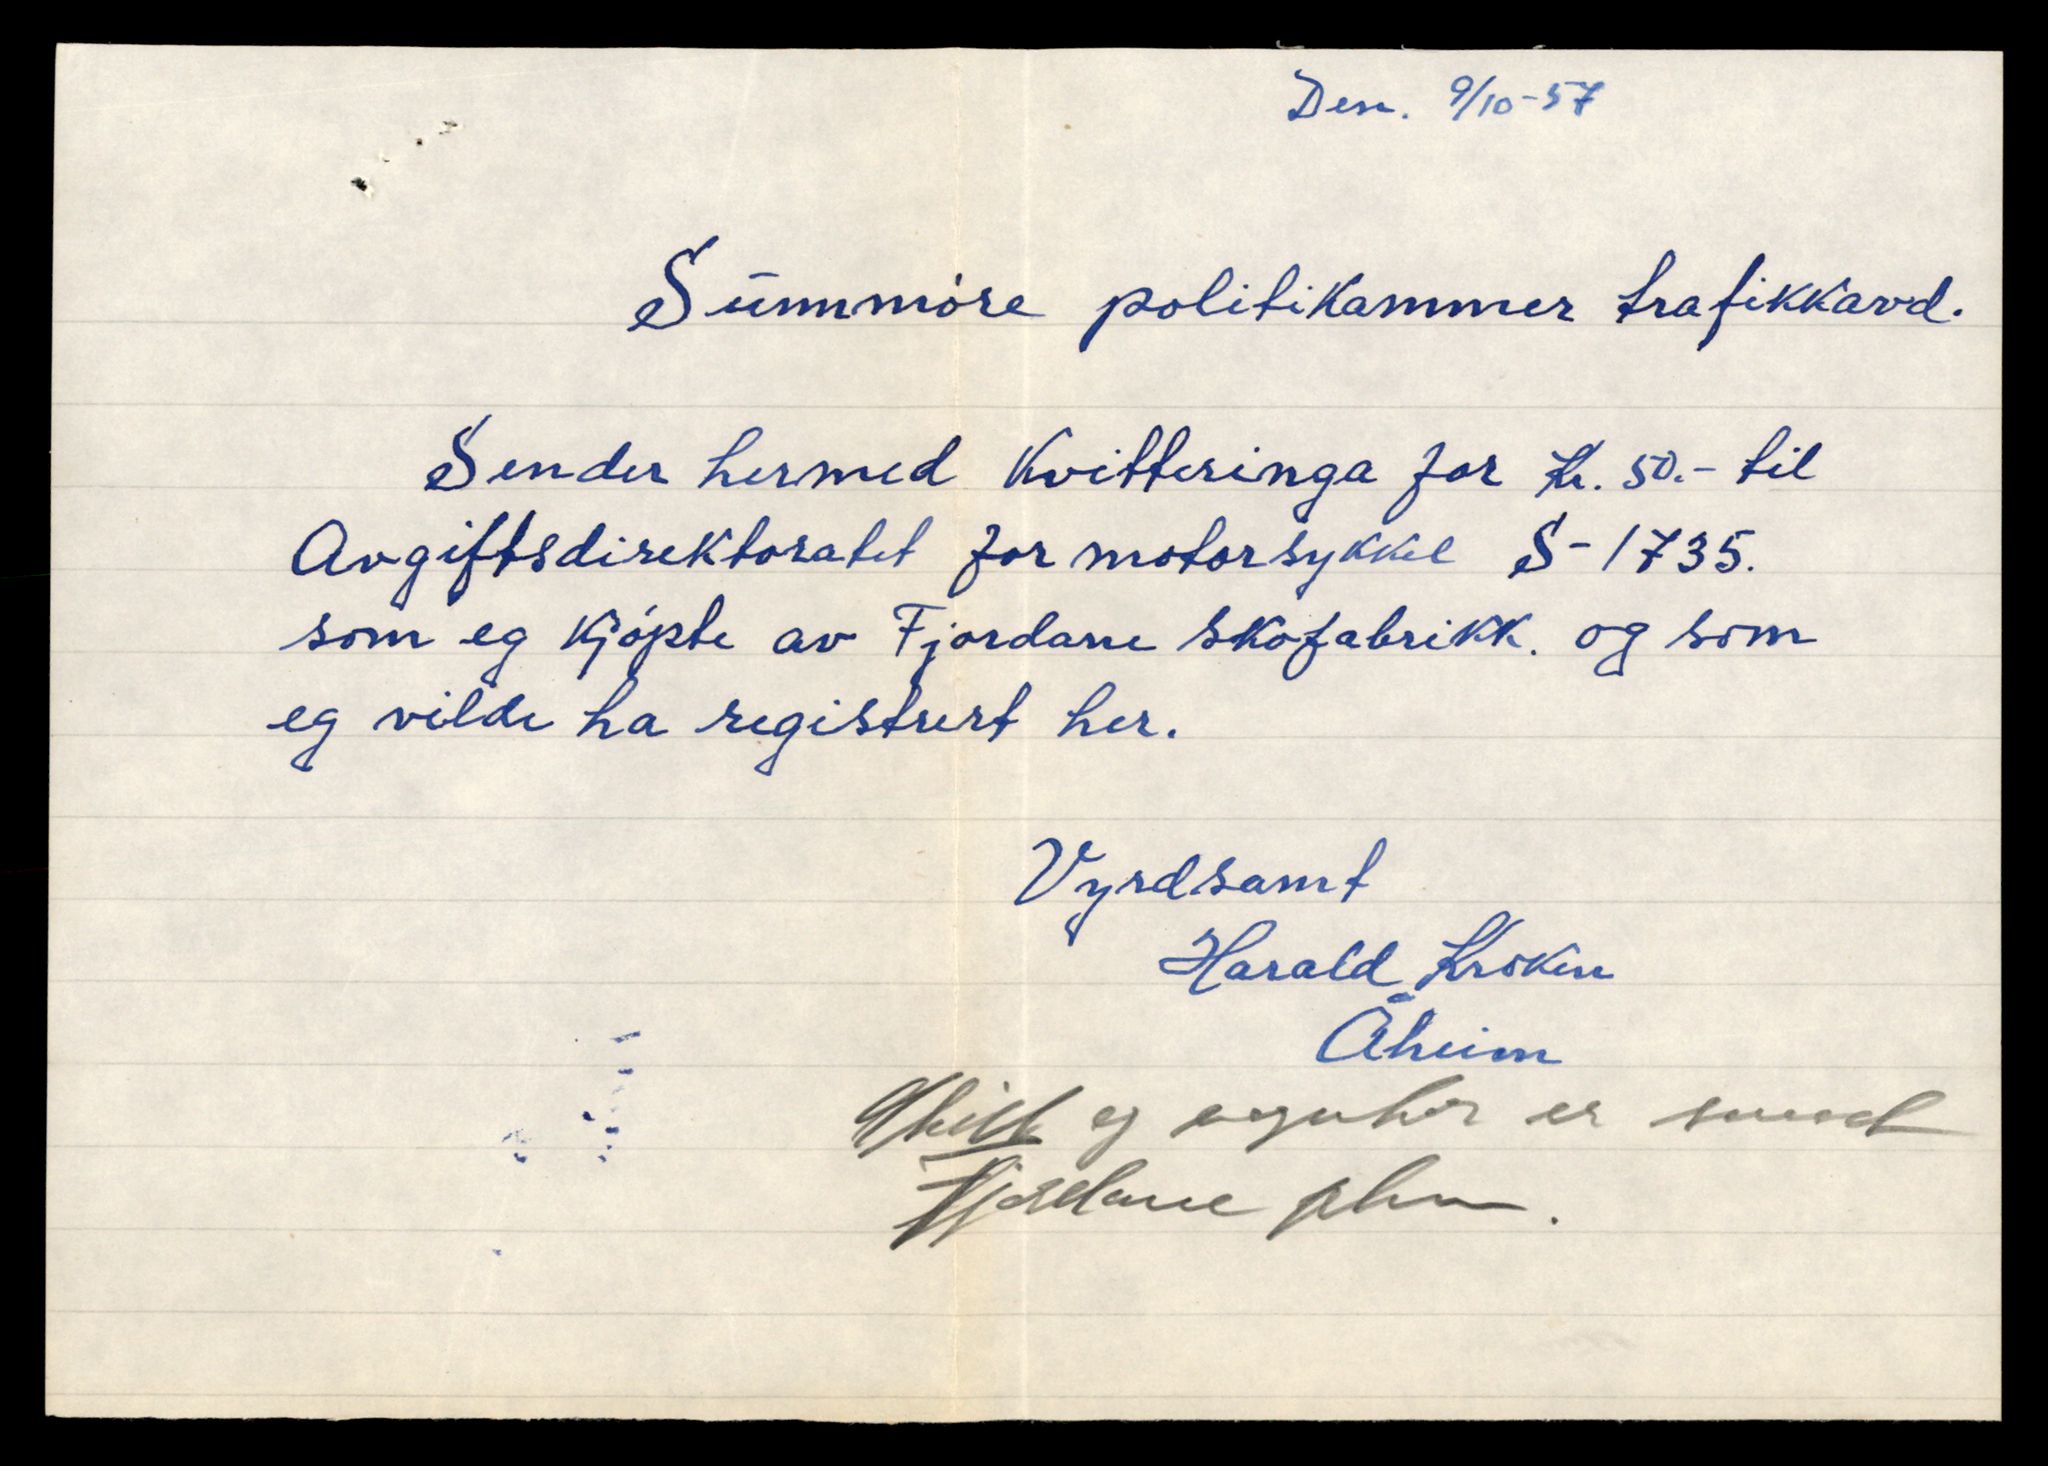 Den. 9/10-57
Sūnnmóre politikammer trafikkavd.
Sender hermed kvitteringa for kr. 50.- til
Avgiftsdirektoratet for motorsykkel S-1735.
som eg kjópte av Fjordane skofabrikk. og som
eg vilde ha registrert her.
Vyrdsamt
Harald Kroken
Åheim
Skilt og vognkor er sendt
Fjordane pkm.